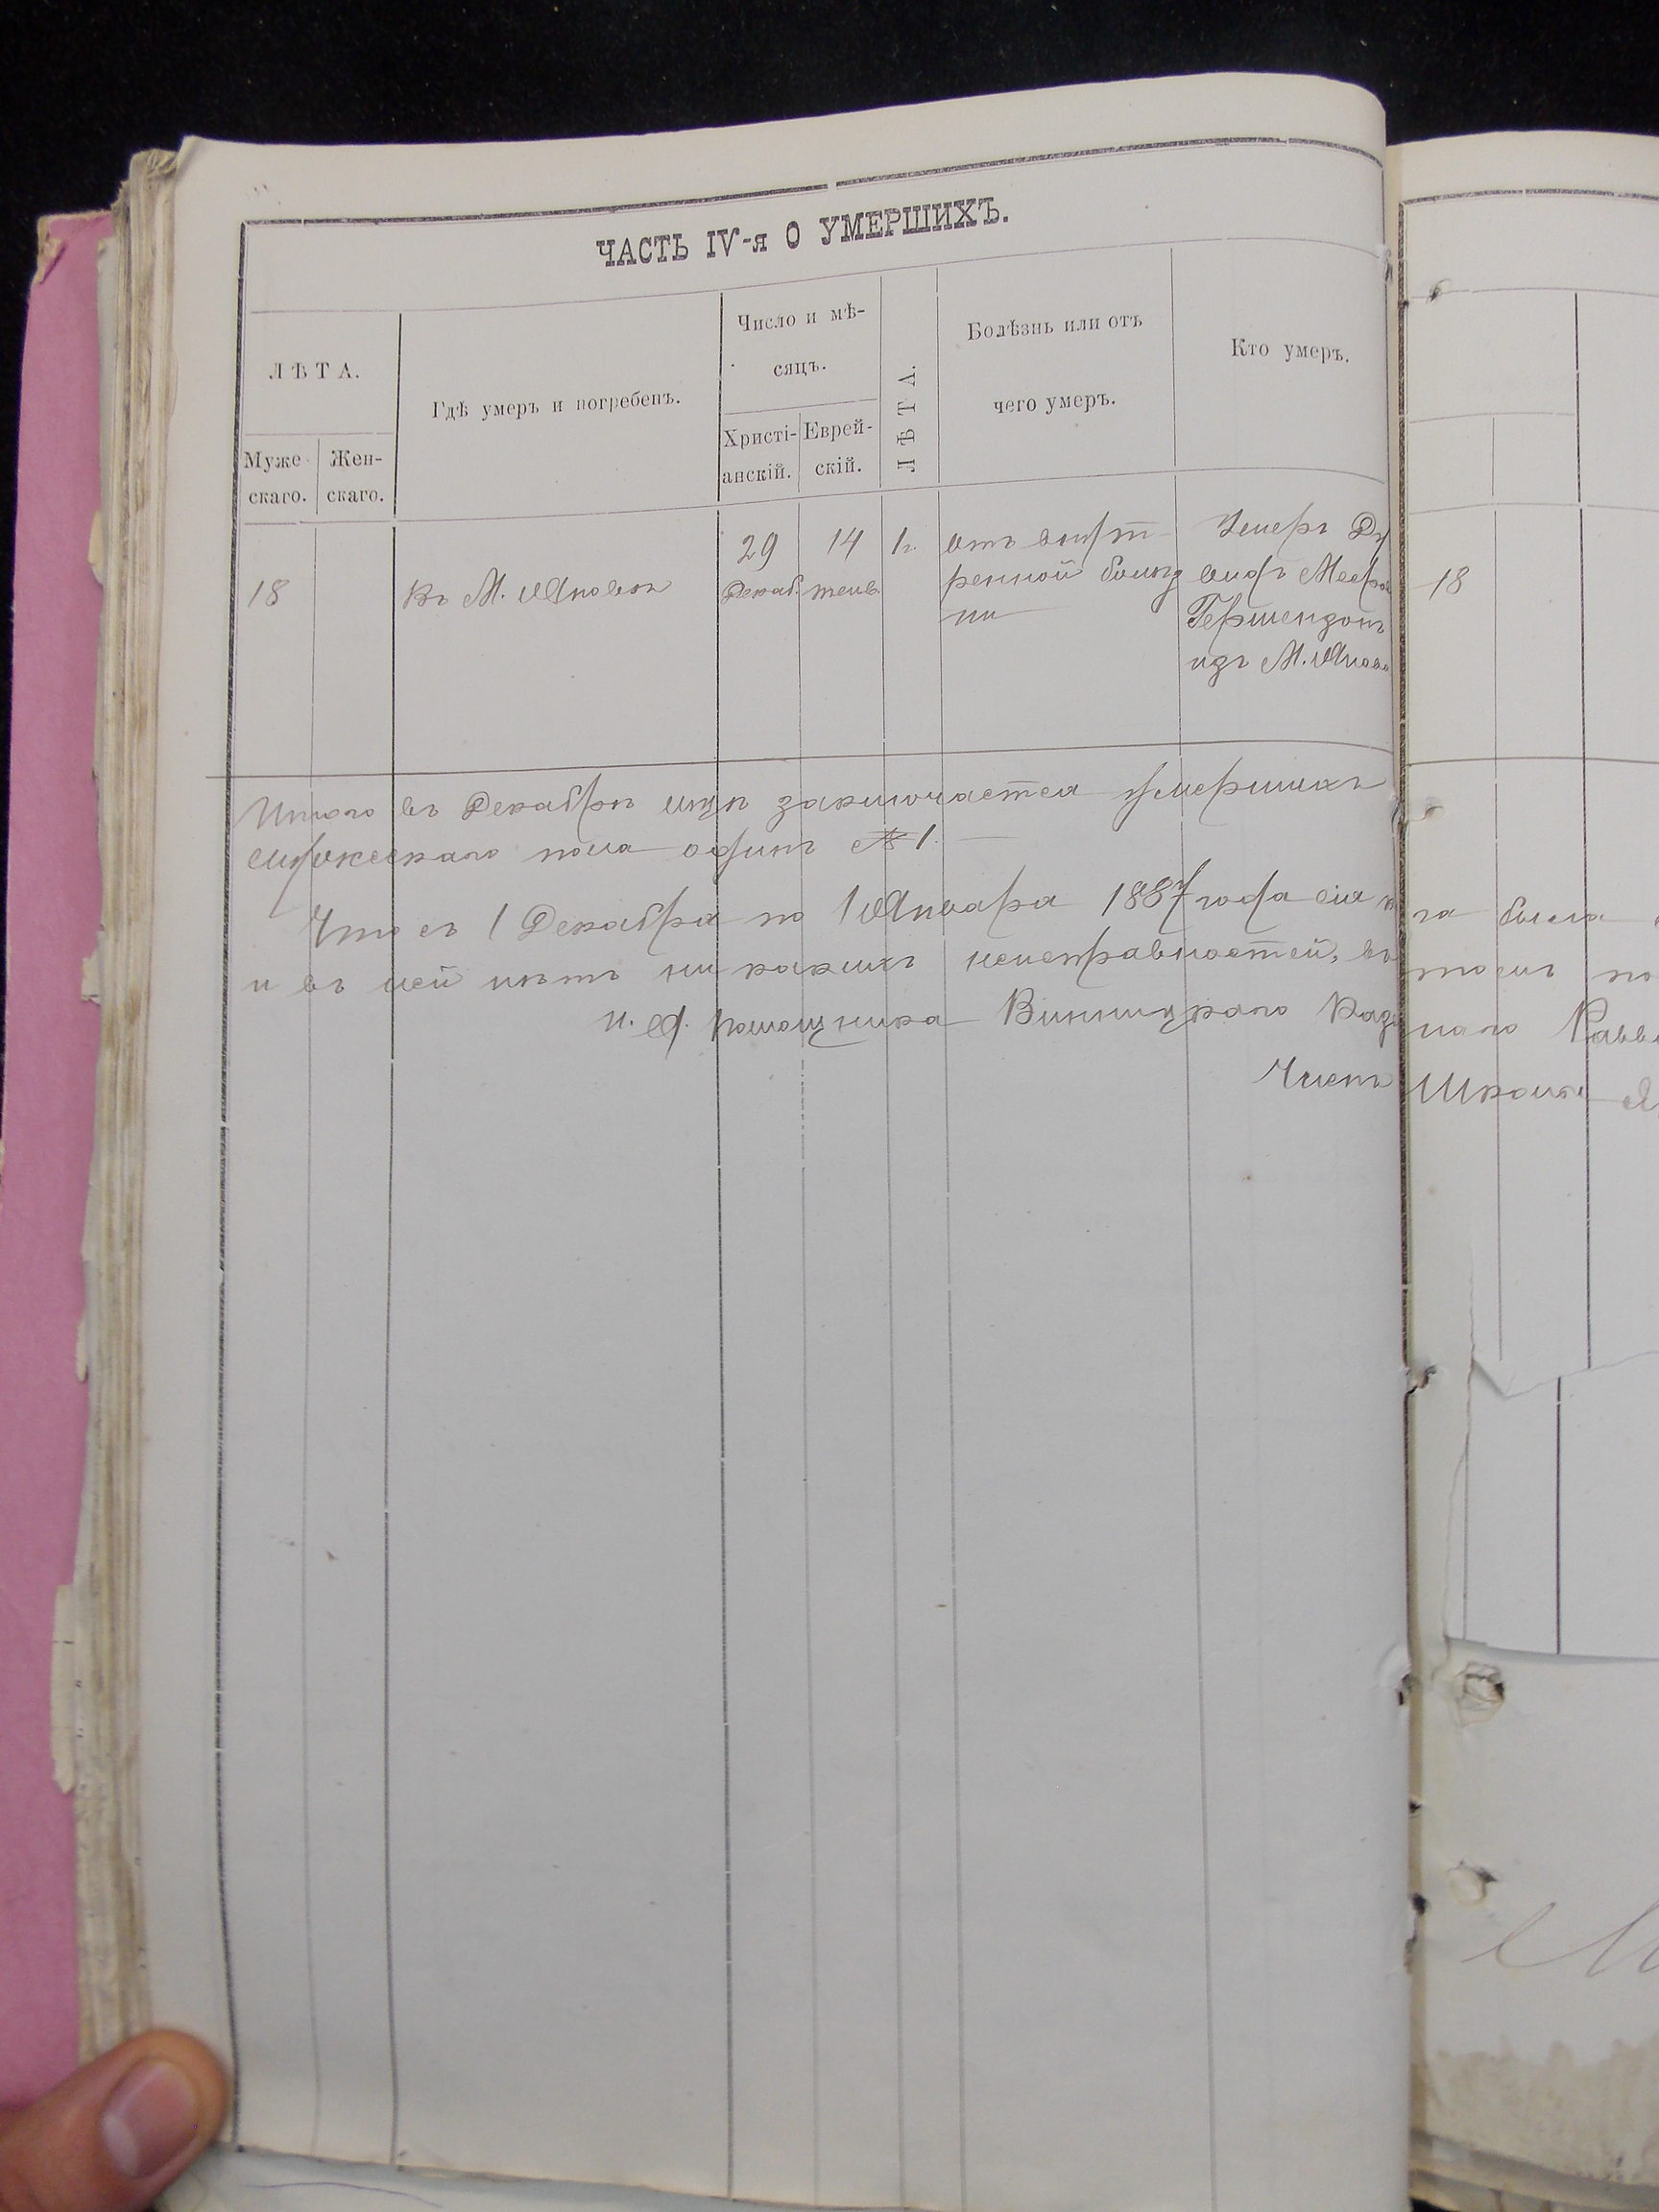 ЧАСТЬ IV-я О УМЕРШИХЪ.
ЛѢТА.
Муже-
скаго.
Жен-
скаго.
Гдѣ умеръ и погребенъ.
Число и мѣ-
сяцъ.
Христі-
анскій.
Еврей-
скій.
ЛѢТА.
Болѣзнь или отъ
чего умеръ.
Кто умеръ.
18
Въ М. Яновѣ
29
Декаб.
14
тейв.
1 г.
Отъ внут-
ренной болѣз
ни
Умеръ Ду
видъ Меер
Гершензонъ
изъ М. Янова
18
Итого въ Декабрѣ мцѣ заключается умершихъ
мужескаго пола одинъ № 1.
Что съ 1 Декабря по 1 Января 1887 года сія кн га была
и въ ней нѣтъ никакихъ неисправностей, въ томъ по
И. д. Помощника Винницкаго Каз наго Равви
Членъ Школы